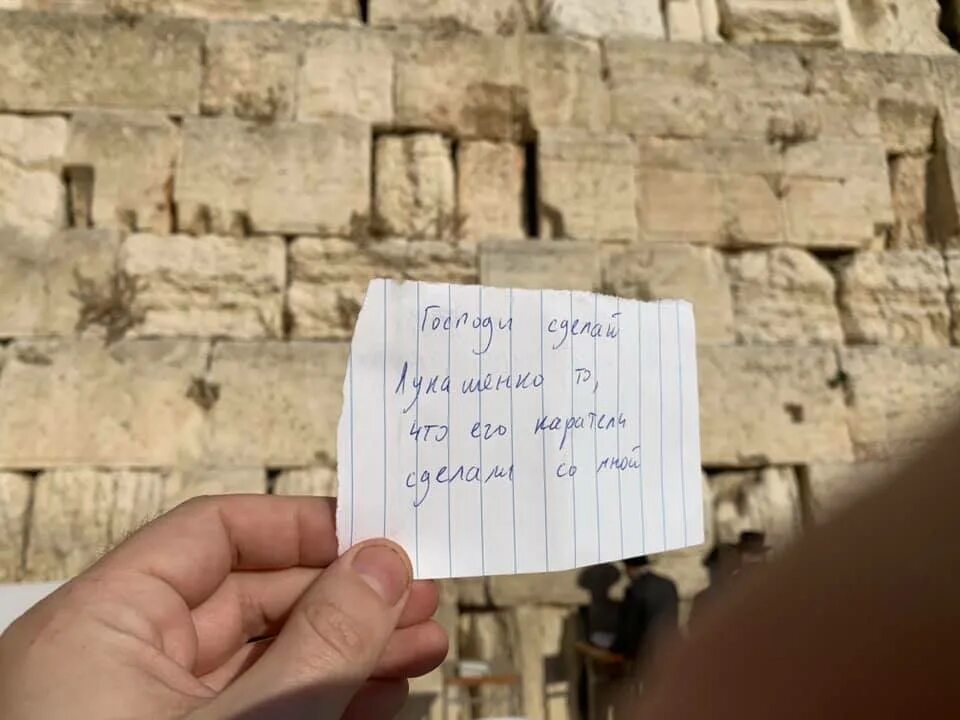 Господи сделай
Лукашенко то,
что его каратели
сделали со мной